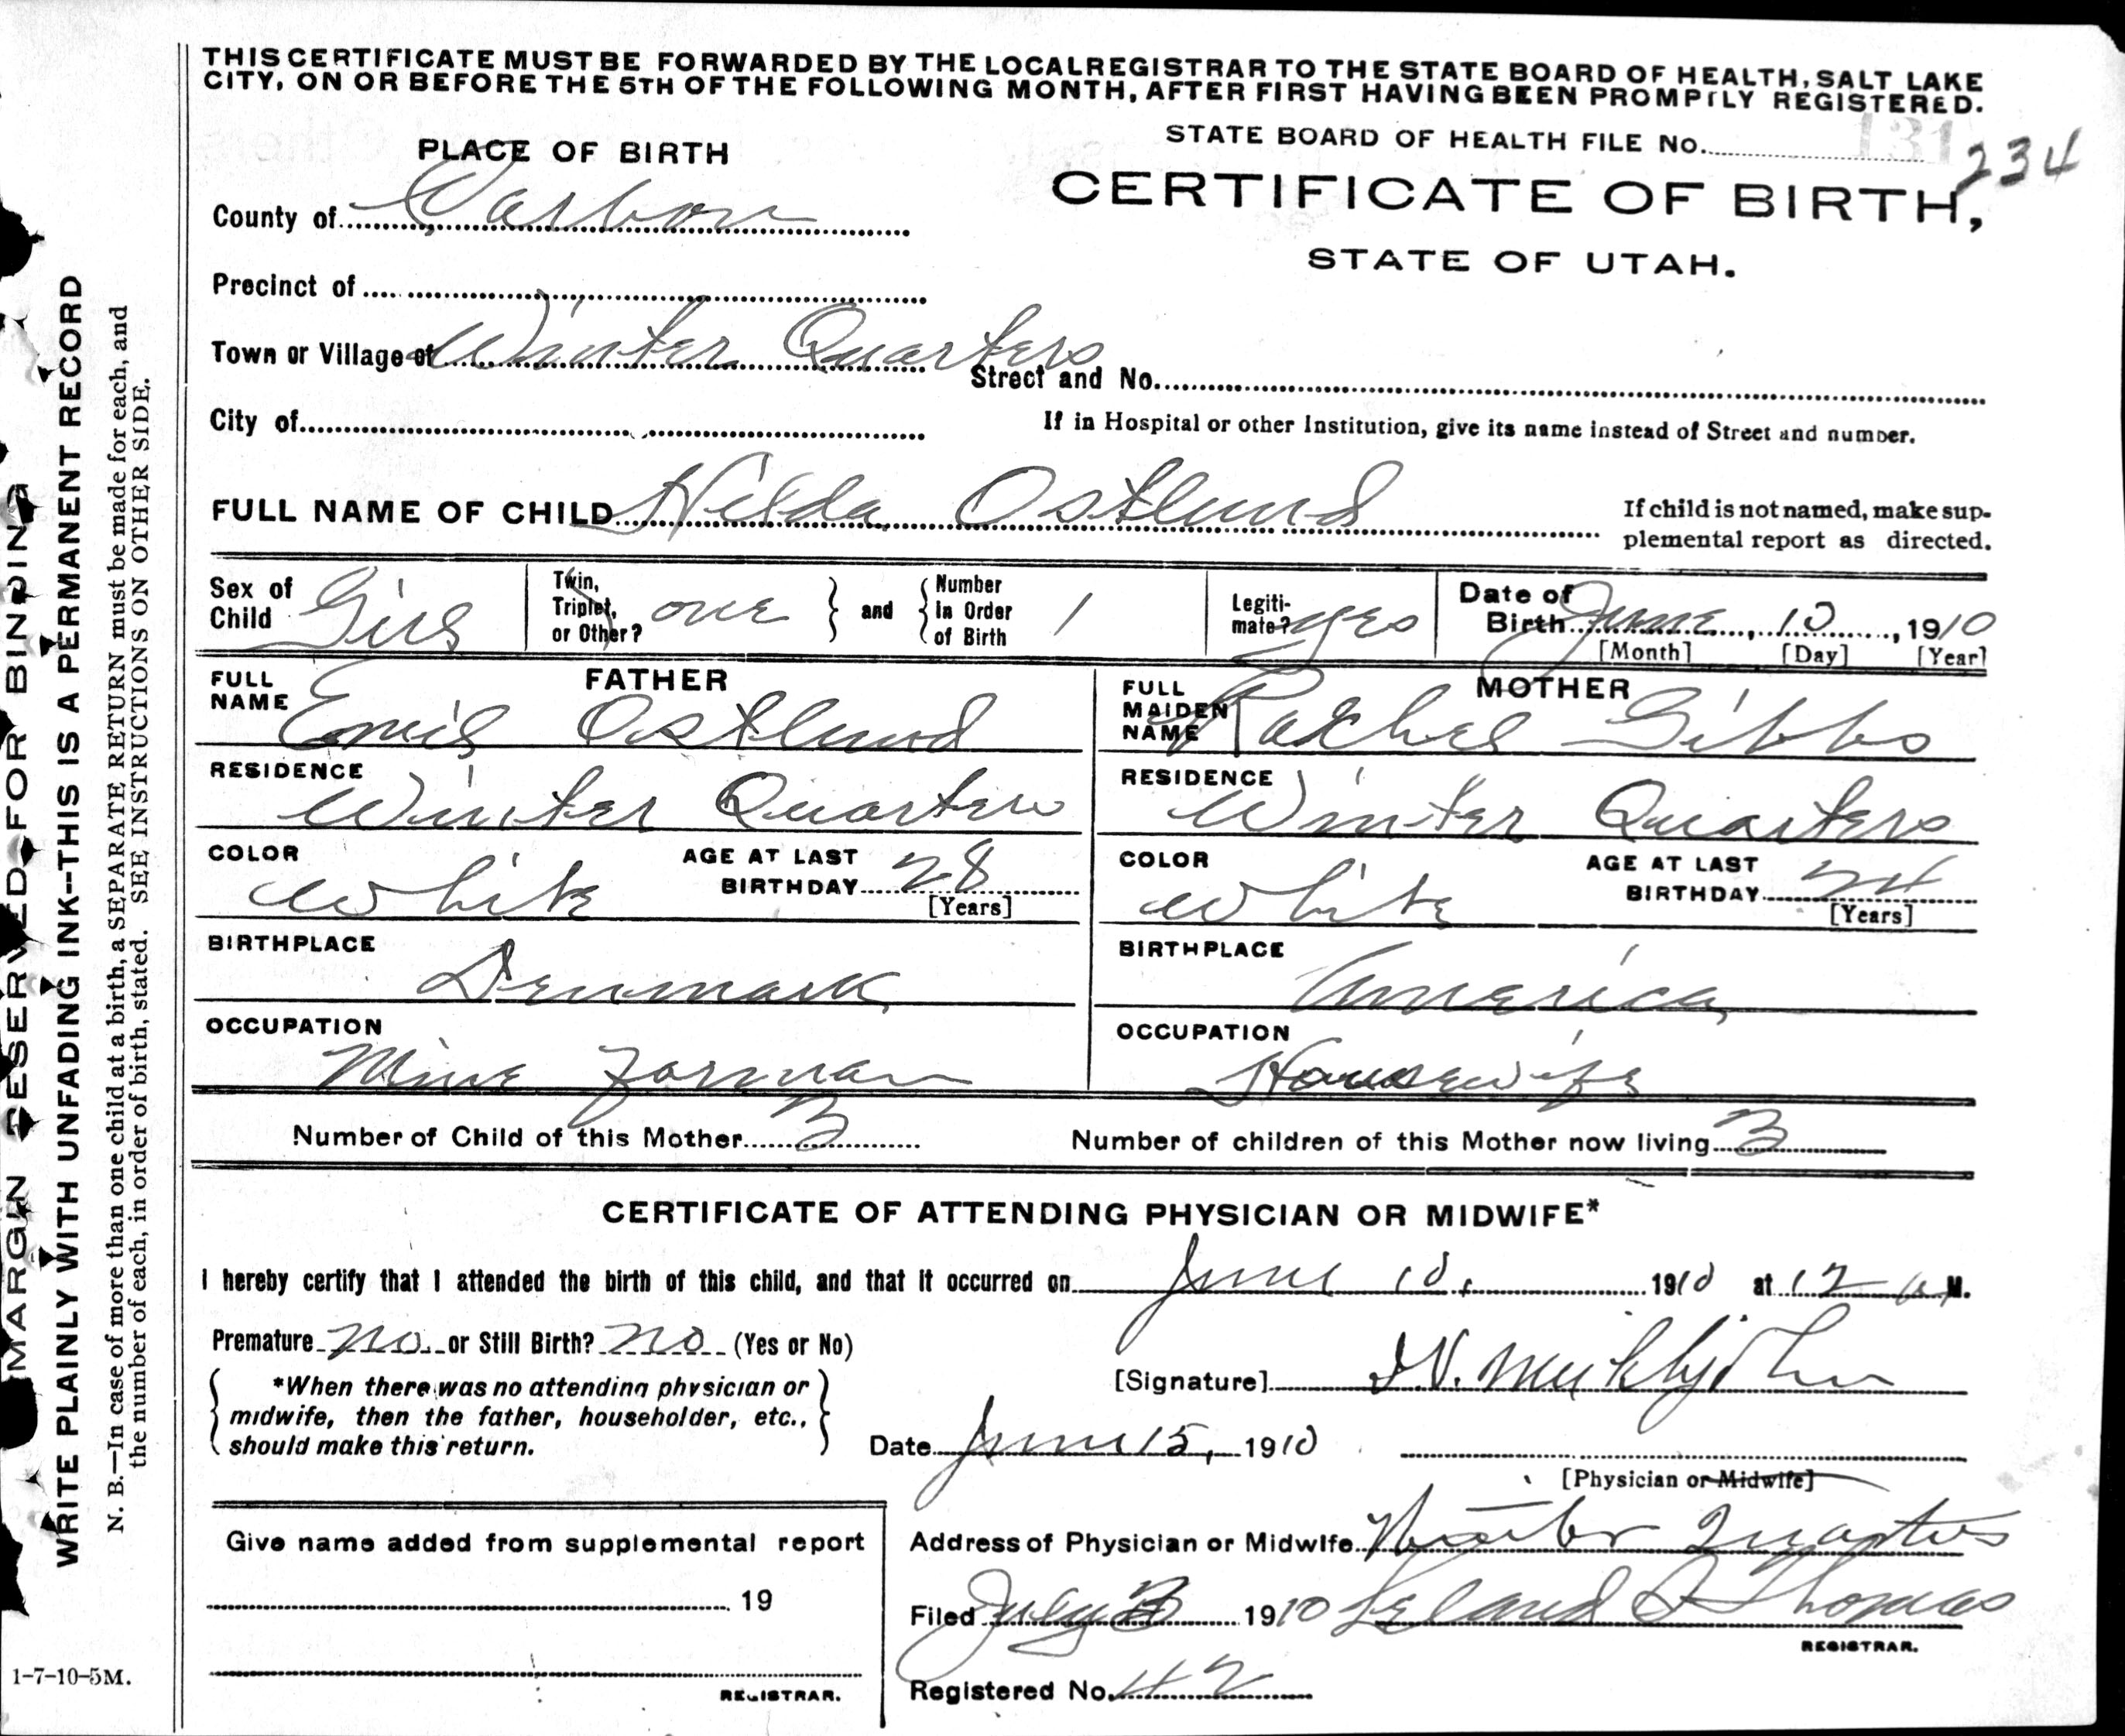 THIS CERTIFICATE MUST BE FORWARDED BY THE LOCAL REGISTRAR TO THE STATE BOARD OF HEALTH, SALT LAKE
CITY, ON OR BEFORE THE 5TH OF THE FOLLOWING MONTH, AFTER FIRST HAVING BEEN PROMPTLY REGISTERED.
STATE BOARD OF HEALTH FILE No. 131 234
PLACE OF BIRTH
CERTIFICATE OF BIRTH,
STATE OF UTAH.
County of Carbon
Precinct of
Town or Village of Winter Quarters
Street and No.
City of
If in Hospital or other Institution, give its name instead of Street and number.
FULL NAME OF CHILD Hilda Ostlund
If child is not named, make sup-
plemental report as directed.
Sex of Child Girl
Twin, Triplet, or Other? one
and Number in Order of Birth 1
Legiti-mate? yes
Date of Birth June, 10, 1910
[Month] [Day] [Year]
FATHER
FULL NAME Emil Ostlund
RESIDENCE Winter Quarters
COLOR White
AGE AT LAST BIRTHDAY 28 [Years]
BIRTHPLACE Denmark
OCCUPATION Mine Forman
MOTHER
FULL MAIDEN NAME Rachel Gibbs
RESIDENCE Winter Quarters
COLOR White
AGE AT LAST BIRTHDAY 24 [Years]
BIRTHPLACE America
OCCUPATION Housewife
Number of Child of this Mother 3
Number of children of this Mother now living 3
CERTIFICATE OF ATTENDING PHYSICIAN OR MIDWIFE*
I hereby certify that I attended the birth of this child, and that it occurred on June 10, 1910 at 12 M.
Premature no or Still Birth? no (Yes or No)
*When there was no attending physician or
midwife, then the father, householder, etc.,
should make this return.
[Signature]
Date June 15, 1910
[Physician or Midwife]
Give name added from supplemental report
19
REGISTRAR.
Address of Physician or Midwife Winter Quarters
Filed July 1910 Leland Thomas
REGISTRAR.
Registered No. 42
1-7-10-5M.
MARGIN RESERVED FOR BINDING
WRITE PLAINLY WITH UNFADING INK--THIS IS A PERMANENT RECORD
N. B.—In case of more than one child at a birth, a SEPARATE RETURN must be made for each, and
the number of each, in order of birth, stated. SEE INSTRUCTIONS ON OTHER SIDE.